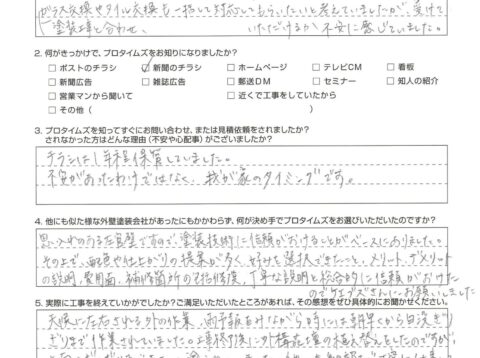 ガラス交換やタイル交換も一括して対応してもらいたいと考えていましたが、受けて
塗装工事と合わせ、 いただけるか不安に感じていました。
2. 何がきっかけで、プロタイムズをお知りになりましたか?
□ポストのチラシ ☑新聞のチラシ □ホームページ □テレビCM □看板
□新聞広告 □雑誌広告 □郵送DM □セミナー □知人の紹介
□営業マンから聞いて □近くで工事をしていたから
□その他( )
3. プロタイムズを知ってすぐにお問い合わせ、または見積依頼をされましたか?
されなかった方はどんな理由(不安や心配事)がございましたか?
チラシは1年程保管していました。
不安があったわけではなく、我が家のタイミングです。
4. 他にも似た様な外壁塗装会社があったにもかかわらず、何が決め手でプロタイムズをお選びいただいたのですか?
思い入れのある左官壁ですので、塗装技術に信頼がおけることがベースにありました。
その上で、配色や仕上がりの提案が多く、好みを選択できたこと。メリット、デメリット
の説明、費用面、補修箇所の 丁寧な説明と総合的に信頼がおけた
のでウェブズさんにお願いしました
5. 実際に工事を終えていかがでしたか?ご満足いただいたところがあれば、その感想をぜひ具体的にお聞かせください。
天候に左右される外の作業、雨予報をみながら時には早朝から日没ぎり
ぎりまで作業されていました。 外構 植え替えをしたのですが、